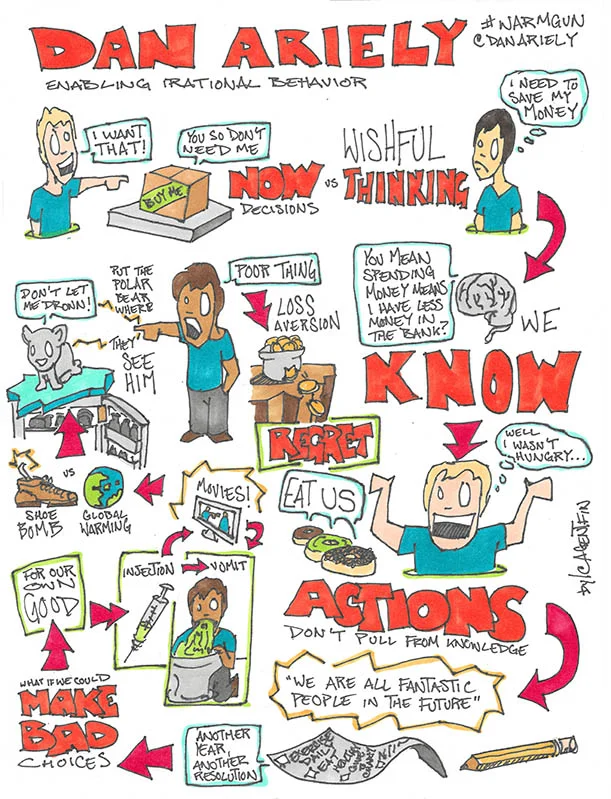 DAN ARIELY
#NARMGUN
@DANARIELY
ENABLING IRATIONAL BEHAVIOR
I WANT
THAT!
YOU SO DON'T
NEED ME
BUY ME
NOW
DECISIONS
VS
WISHFUL
THINKING
I NEED TO
SAVE MY
MONEY
YOU MEAN
SPENDING
MONEY MEANS
I HAVE LESS
MONEY IN
THE BANK?
WE
KNOW
WELL
I WASN'T
HUNGRY...
EAT US
ACTIONS
DON'T PULL FROM KNOWLEDGE
"WE ARE ALL FANTASTIC
PEOPLE IN THE FUTURE"
EXERCISE
DAILY
EAT
ANOTHER
YEAR,
ANOTHER
RESOLUTION
WHAT IF WE COULD
MAKE
BAD
CHOICES
FOR OUR
OWN
GOOD
INJECTION
VOMIT
MOVIES!
SHOE
BOMB
VS
GLOBAL
WARMING
DON'T LET
ME DROWN!
PUT THE
POLAR
BEAR
WHERE
THEY
SEE
HIM
POOR THING
LOSS
AVERSION
REGRET